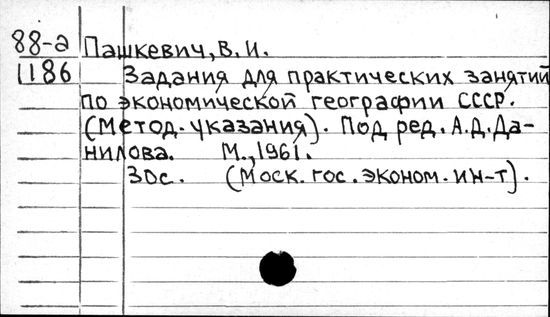 88-а Пашкевич, В. И.
1186 Задания для практических занятий
по экономической географии СССР.
(Метод. указания). Под ред. А.Д.Да-
нилова. М., 1961.
30с. (Моск. гос. эконом. ин-т).